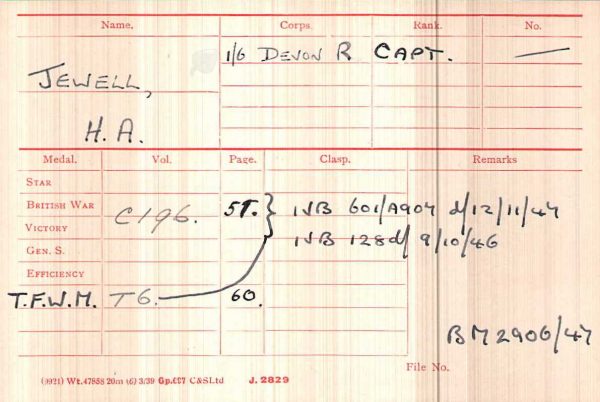 Name. Corps. Rank. No.
1/6 DEVON R CAPT. —
JEWELL,
H. A.
Medal. Vol. Page. Clasp. Remarks
STAR
BRITISH WAR C196. 57. } IVB 601/A907 d/12/11/47
VICTORY IVB 128d/ 9/10/46
GEN. S.
EFFICIENCY
T.F.W.M. T6. 60.
BM2906/47
File No.
(9921) Wt.47858 20m (6) 3/39 Gp.697 C&SLtd J. 2829